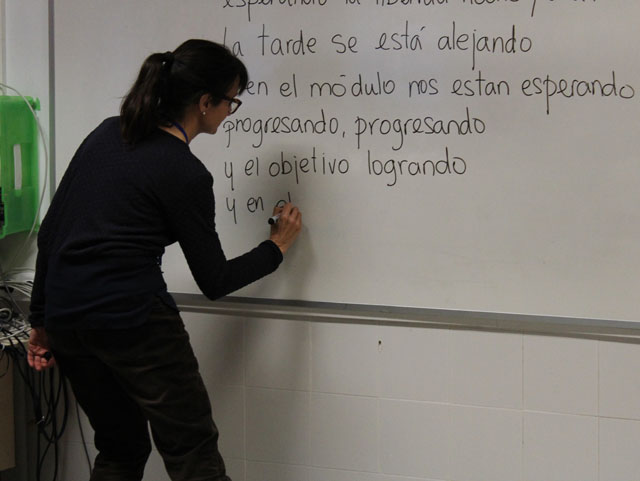 esperando la libertad
la tarde se está alejando
en el módulo nos estan esperando
progresando, progresando
y el objetivo logrando
y en el